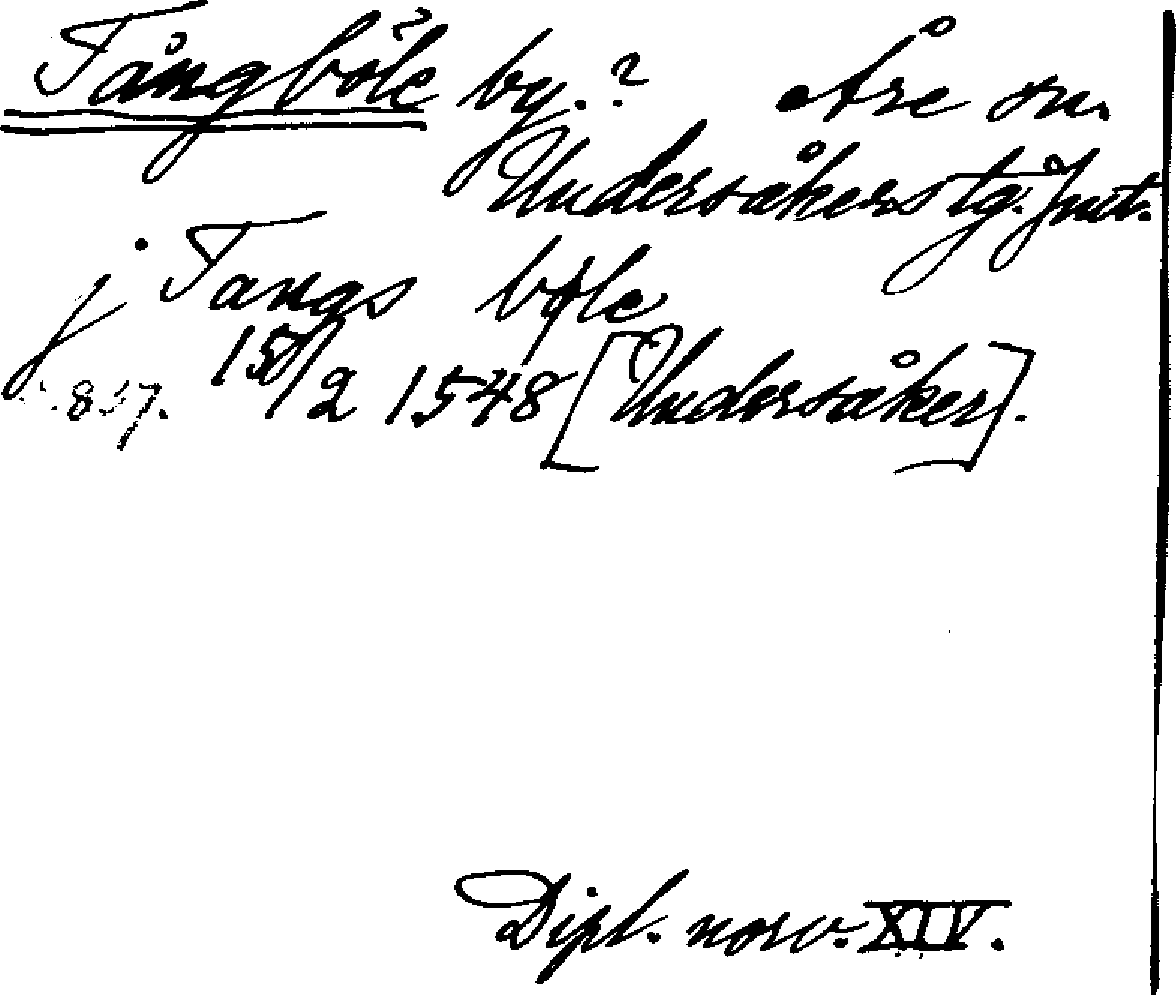 Tångböle by.? Åre sn.
Undersåkers tg. Jmt.
j Tangs bøle
15/2 1548 [Undersåker].
Dipl. norv. XIV.